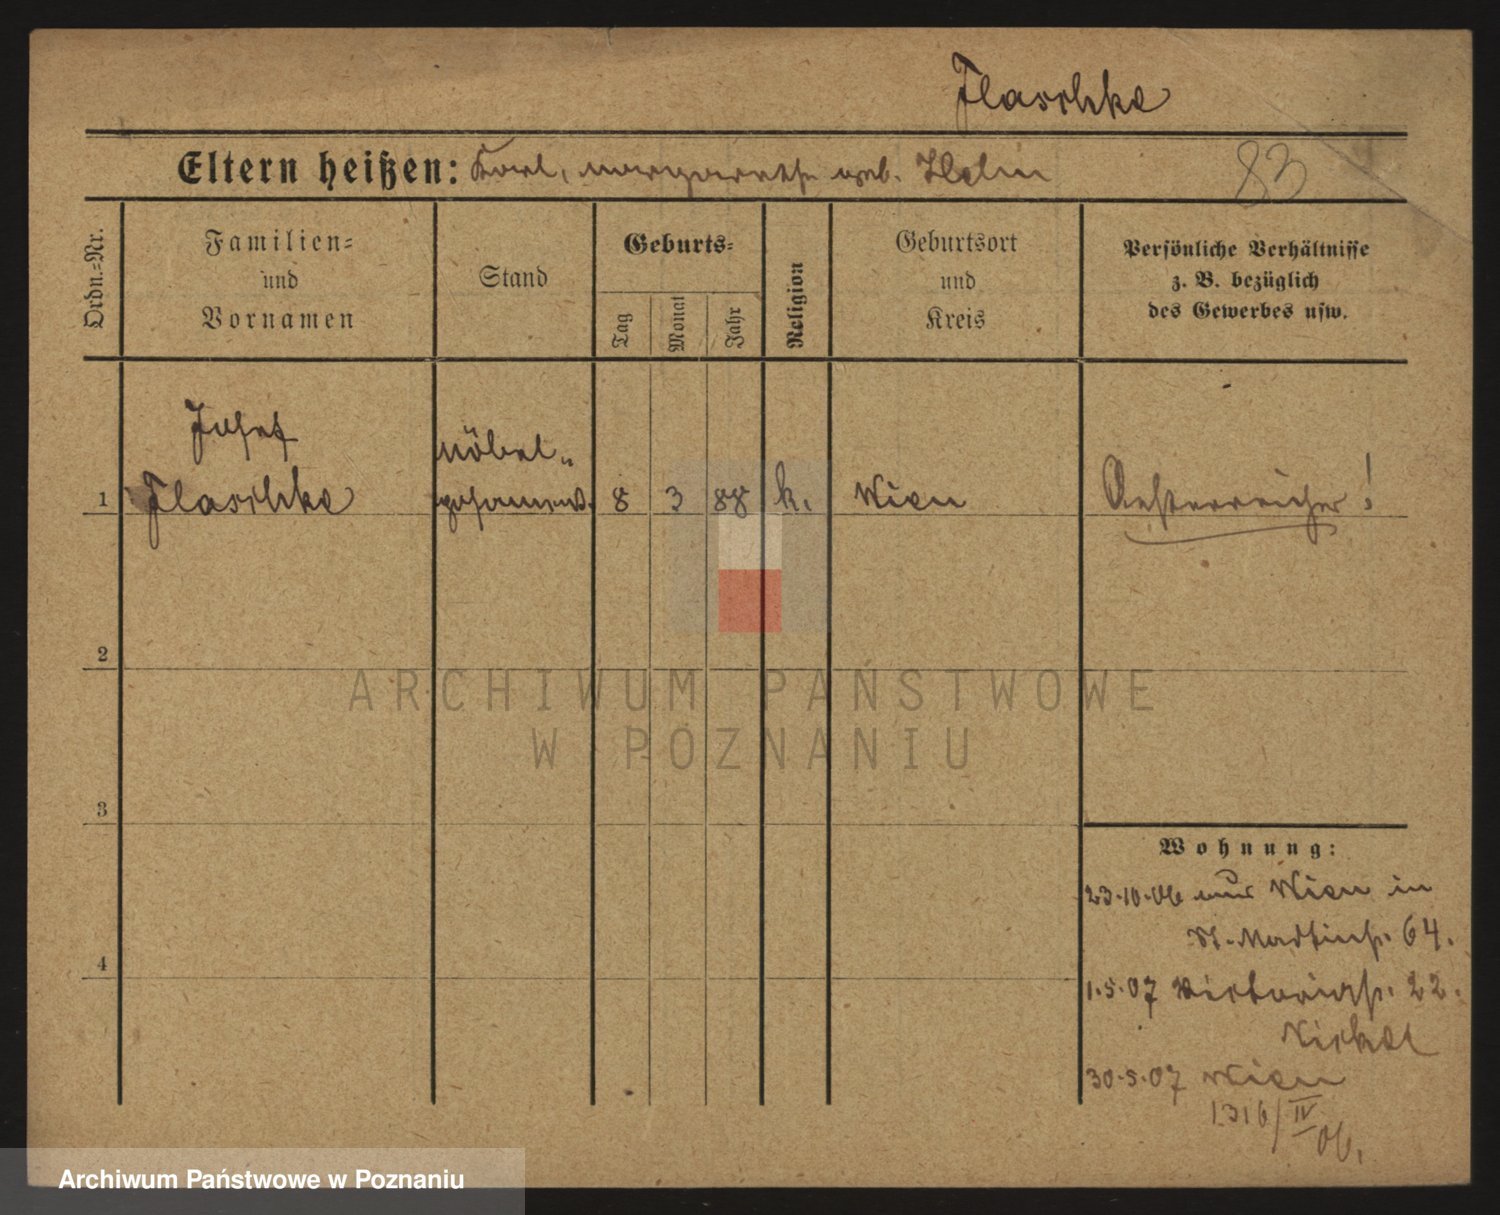 Flaschke
Eltern heißen: Karl, Margarethe geb.
83
Ordn.-Nr.
Familien-
und
Vornamen
Stand
Geburts-
Tag
Monat
Jahr
Religion
Geburtsort
und
Kreis
Persönliche Verhältnisse
z. B. bezüglich
des Gewerbes usw.
Josef
Möbel-
1 Flaschke 8 3 88 k. Wien Oesterreicher!
2
3
4
Wohnung:
23.10.06 aus Wien in
St. Martinstr. 64.
1.5.07 Victoriastr. 22.
Nickel
30.5.07 Wien
1316/IV
06.
ARCHIWUM PAŃSTWOWE
W POZNANIU
Archiwum Państwowe w Poznaniu